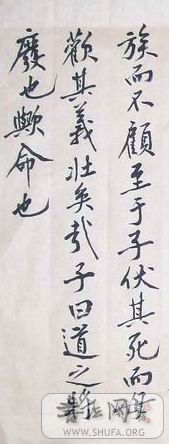 族而不顧至于子伏其死而
歡其義壯矣哉子曰道之將
廢也歟命也
WWW.SHUFA.ORG